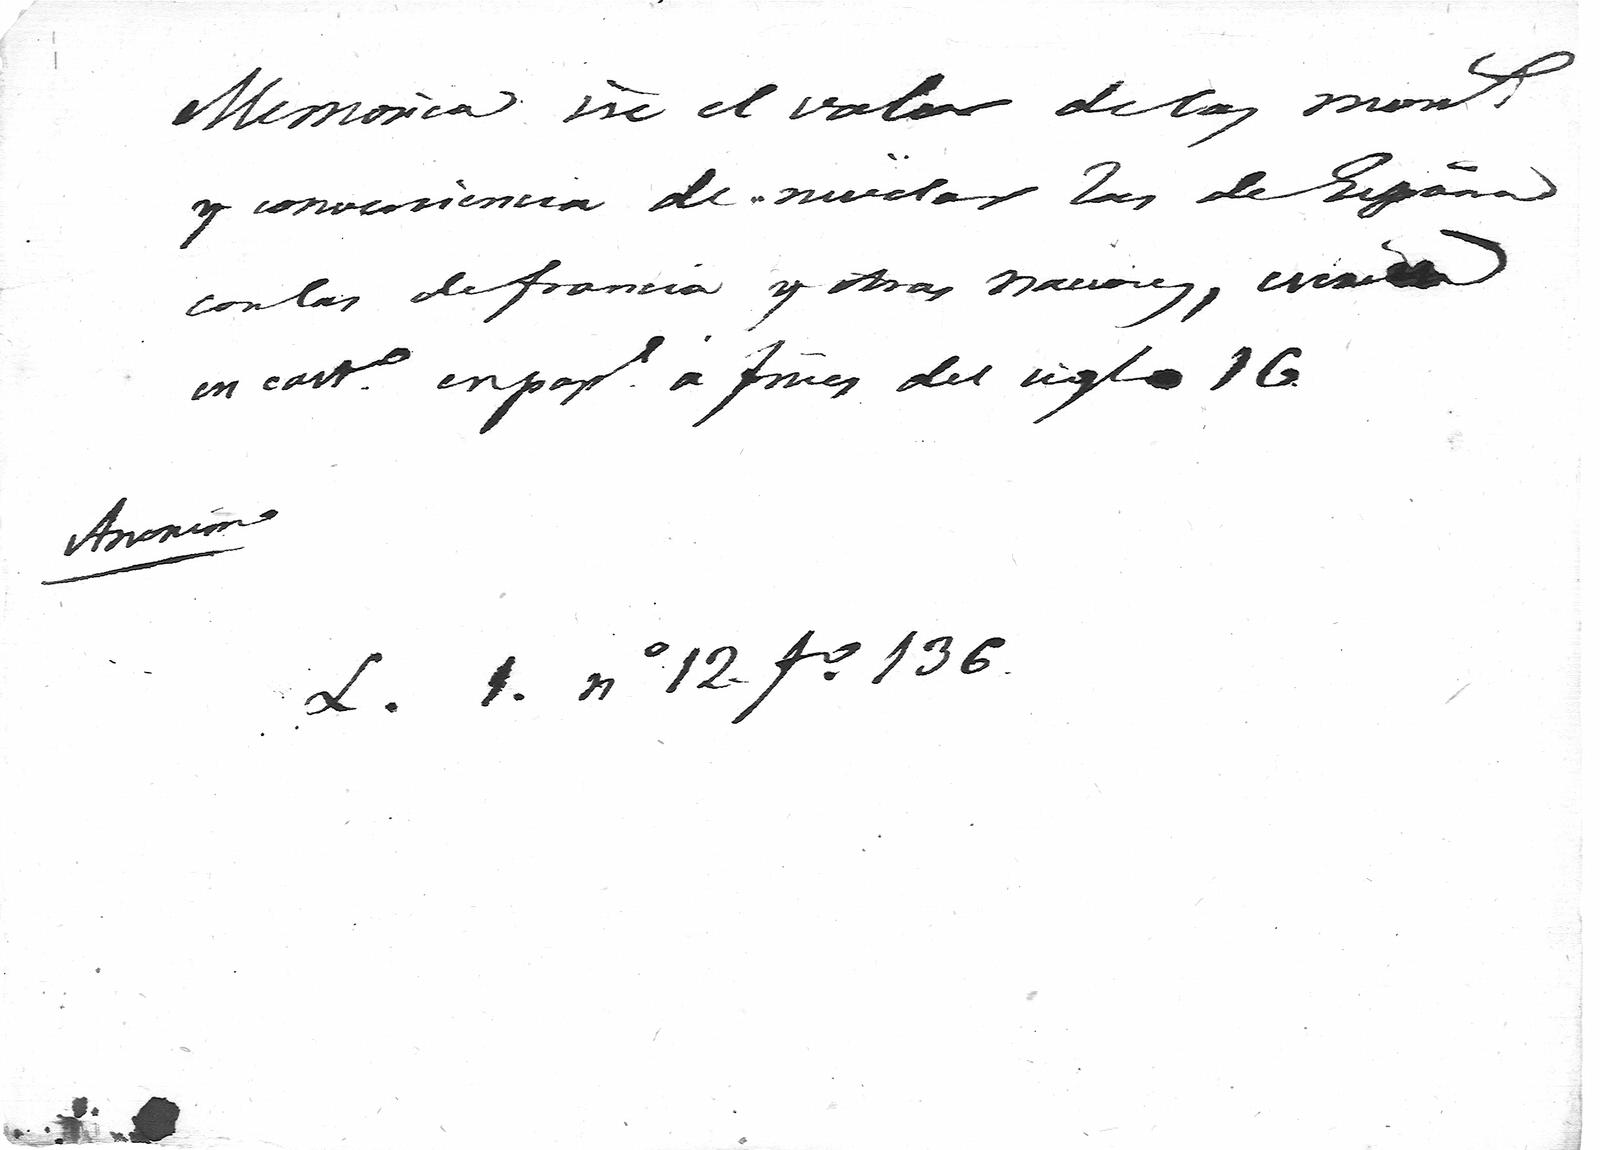 Memoria sre el valor de las mon.s
y conveniencia de nivelar las de España
con las de francia y otras naciones, escrita
en cast.º en pap.l á fines del siglo 16
Anonimo
L. 1. nº 12 fº 136.